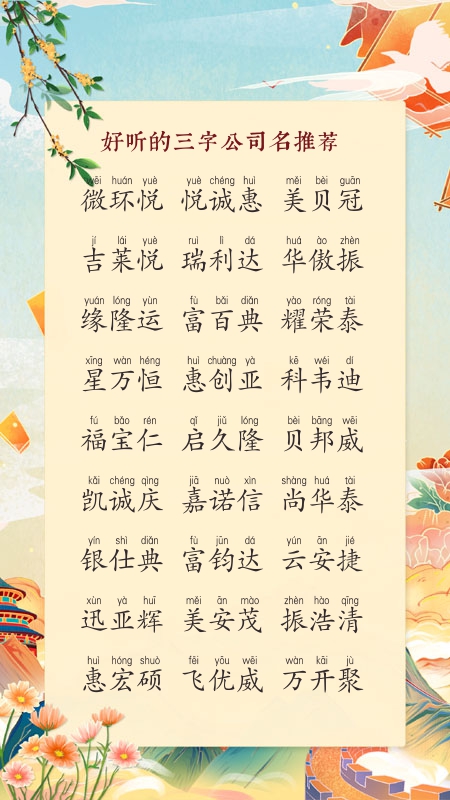 好听的三字公司名推荐
wēi huán yuè yuè chéng huì měi bèi guān
微环悦 悦诚惠 美贝冠
jí lái yuè ruì lì dá huá ào zhèn
吉莱悦 瑞利达 华傲振
yuán lóng yùn fù bǎi diǎn yào róng tài
缘隆运 富百典 耀荣泰
xīng wàn héng huì chuàng yà kē wéi dí
星万恒 惠创亚 科韦迪
fú bǎo rén qǐ jiǔ lóng bèi bāng wēi
福宝仁 启久隆 贝邦威
kǎi chéng qìng jiā nuò xìn shàng huá tài
凯诚庆 嘉诺信 尚华泰
yín shì diǎn fù jūn dá yún ān jié
银仕典 富钧达 云安捷
xùn yà huī měi ān mào zhèn hào qīng
迅亚辉 美安茂 振浩清
huì hóng shuò fēi yōu wēi wàn kāi jù
惠宏硕 飞优威 万开聚